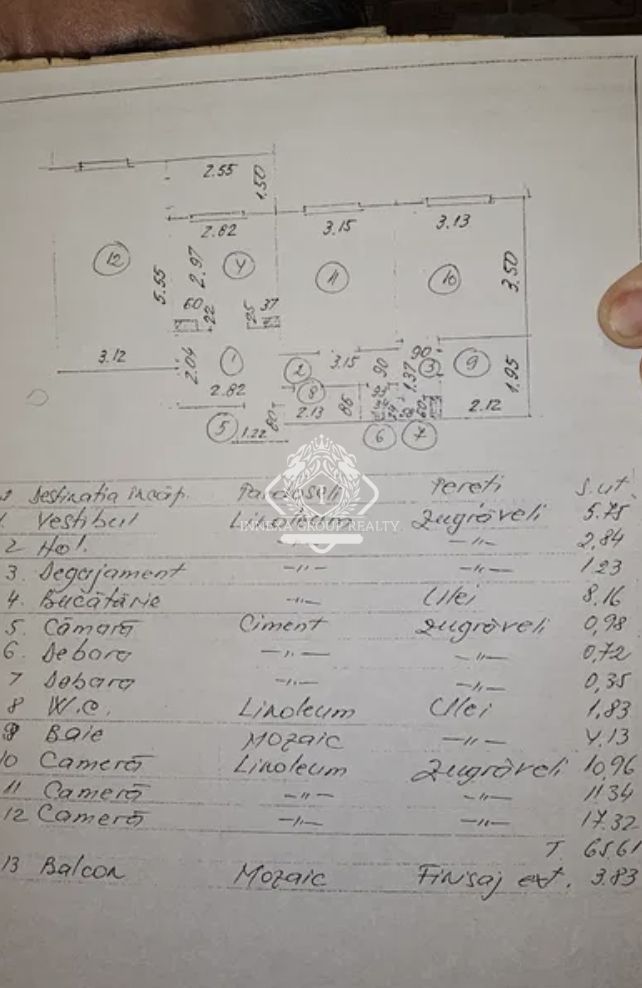 2.55
1.50
2.82
3.15
3.13
12
5.55
2.97
4
11
10
3.50
60
22
25
37
3.12
2.04
1
2
3.15
90
90
1.37
3
9
1.95
2.82
8
2.13
86
2.12
5
1.22
80
6
7
Destinatia incăp. Pardoseli Pereti S.ut.
1. Vestibul Linoleum Zugrăveli 5.75
2 Hol. -〃- -〃- 2,84
3. Degajament -〃- -〃- 1.23
4. Bucătărie -〃- Ulei 8.16
5. Cămară Ciment Zugrăveli 0,98
6. Debara -〃- -〃- 0,72
7 Debara -〃- -〃- 0,35
8 W.C. Linoleum Ulei 1,83
9 Baie Mozaic -〃- 4.13
10 Cameră Linoleum Zugrăveli 10,96
11 Cameră -〃- -〃- 11.34
12 Cameră -〃- -〃- 17.32
T. 65.61
13 Balcon Mozaic Finisaj ext. 3.83
INNEXA GROUP REALTY